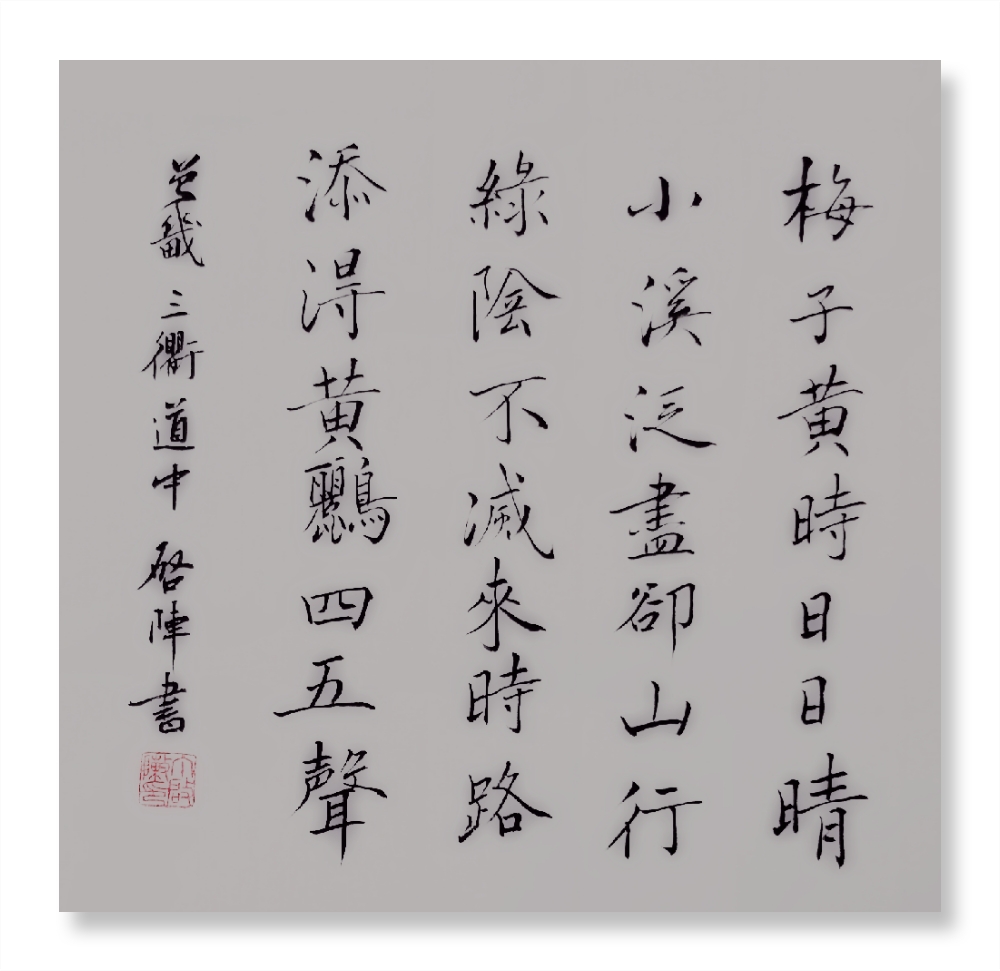 梅子黄時日日晴
小溪泛盡卻山行
綠陰不減來時路
添得黄鸝四五聲
曾畿 三衢道中 啓陣書